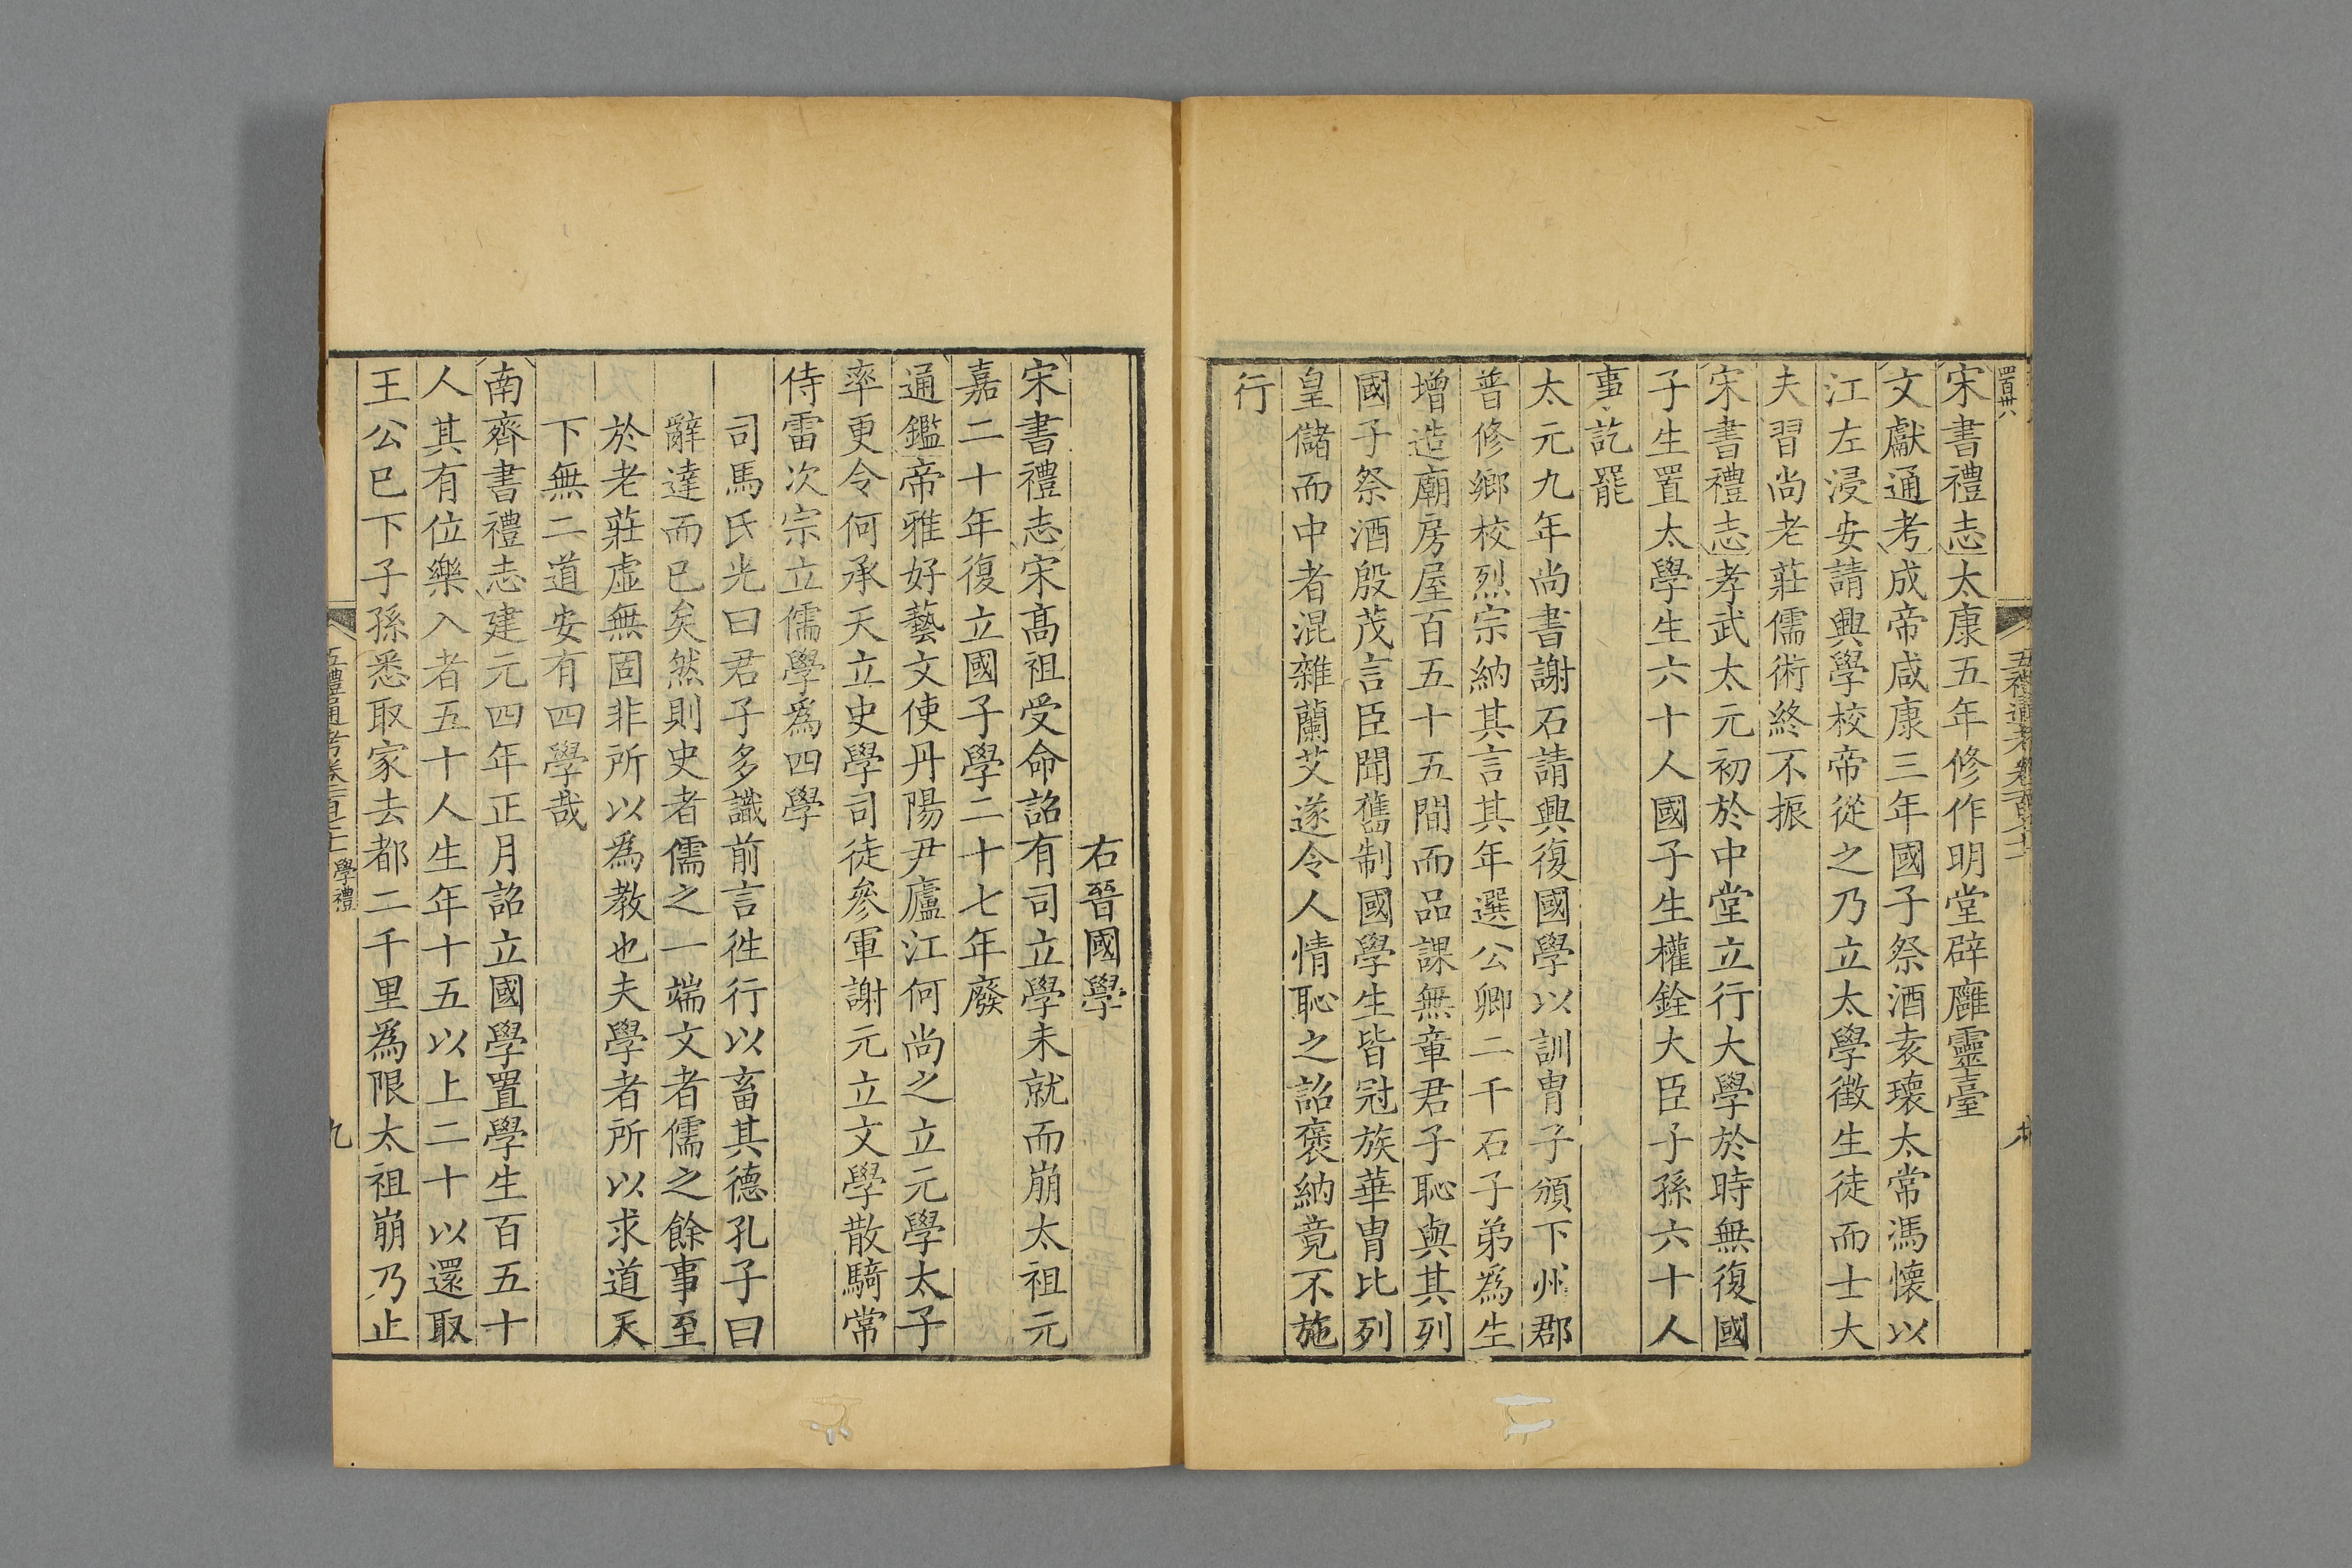 宋書禮志太康五年修作明堂辟廱靈臺
文獻通考成帝咸康三年國子祭酒袁瓌太常馮懷以
江左浸安請興學校帝從之乃立太學徵生徒而士大
夫習尚老莊儒術終不振
宋書禮志孝武太元初於中堂立行大學於時無復國
子生置太學生六十人國子生權銓大臣子孫六十人
事訖罷
太元九年尚書謝石請興復國學以訓冑子頒下州郡
普修鄉校烈宗納其言其年選公卿二千石子弟爲生
增造廟房屋百五十五間而品課無章君子恥與其列
國子祭酒殷茂言臣聞舊制國學生皆冠族華冑比列
皇儲而中者混雜蘭艾遂令人情恥之詔褒納竟不施
行
右晉國學
宋書禮志宋髙祖受命詔有司立學未就而崩太祖元
嘉二十年復立國子學二十七年廢
通鑑帝雅好藝文使丹陽尹廬江何尚之立元學太子
率更令何承天立史學司徒參軍謝元立文學散騎常
侍雷次宗立儒學爲四學
司馬氏光曰君子多識前言徃行以畜其德孔子曰
辭達而已矣然則史者儒之一端文者儒之餘事至
於老莊虛無固非所以為教也夫學者所以求道天
下無二道安有四學哉
南齊書禮志建元四年正月詔立國學置學生百五十
人其有位樂入者五十人生年十五以上二十以還取
王公已下子孫悉取家去都二千里爲限太祖崩乃止
學禮
九